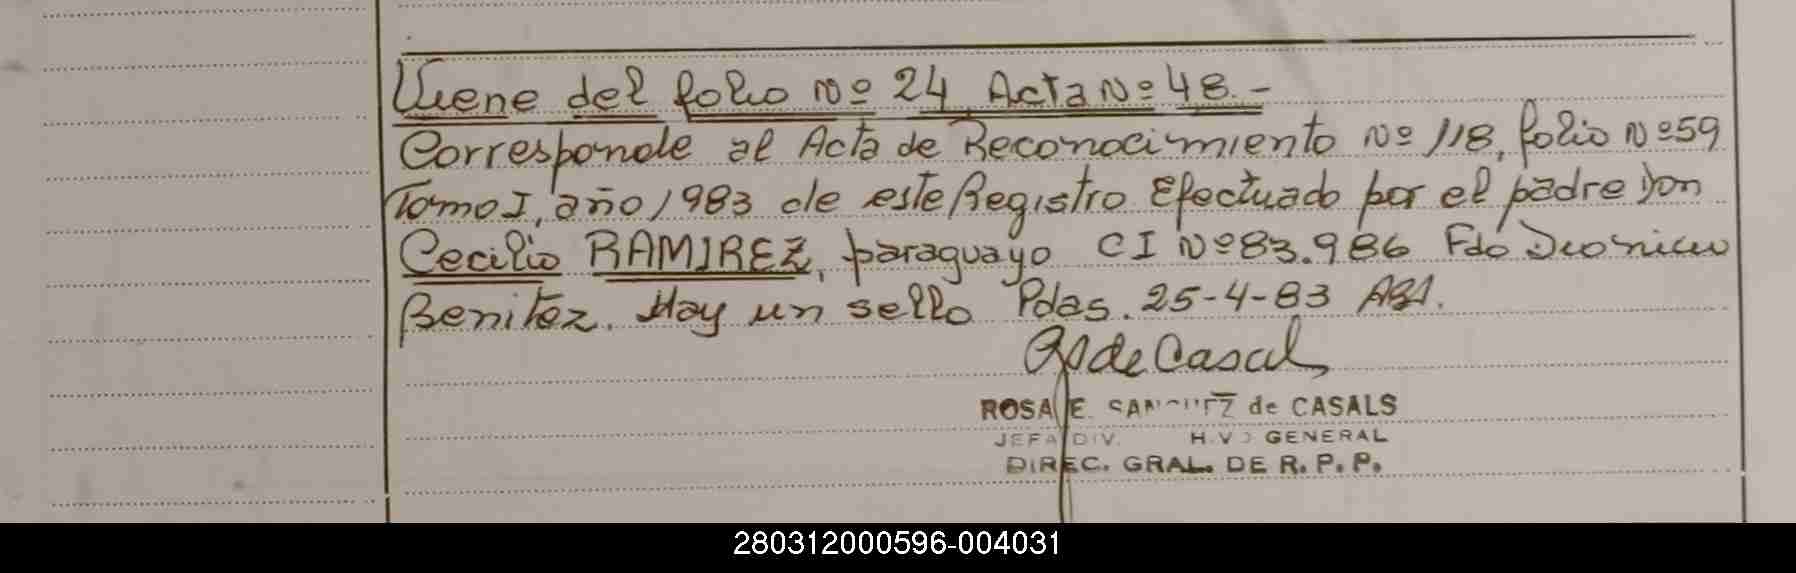 Viene del folio Nº 24 Acta Nº 48.-
Corresponde al Acta de Reconocimiento Nº 118, folio Nº 59
Tomo I, año 1983 de este Registro Efectuado por el padre Don
Cecilio RAMIREZ, paraguayo CI Nº 83.986 Fdo Dionicio
Benitez. Hay un sello Pdas. 25-4-83
de Casals
ROSA E. de CASALS
JEFA DIV. GENERAL
DIREC. GRAL. DE R. P. P.
280312000596-004031